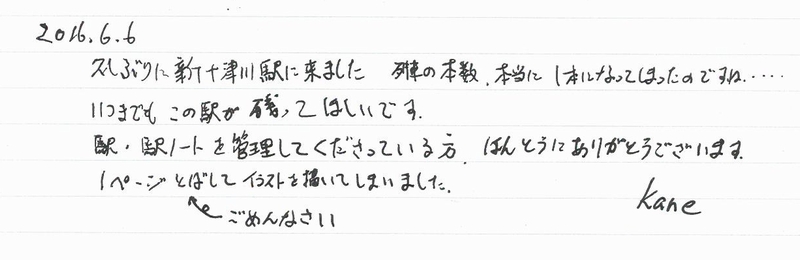 2016.6.6
久しぶりに新十津川駅に来ました 列車の本数、本当に1本になってしまったのですね‥‥‥
いつまでもこの駅が残ってほしいです。
駅・駅ノートを管理してくださっている方、ほんとうにありがとうございます。
1ページとばしてイラストを描いてしまいました。
ごめんなさい
Kane